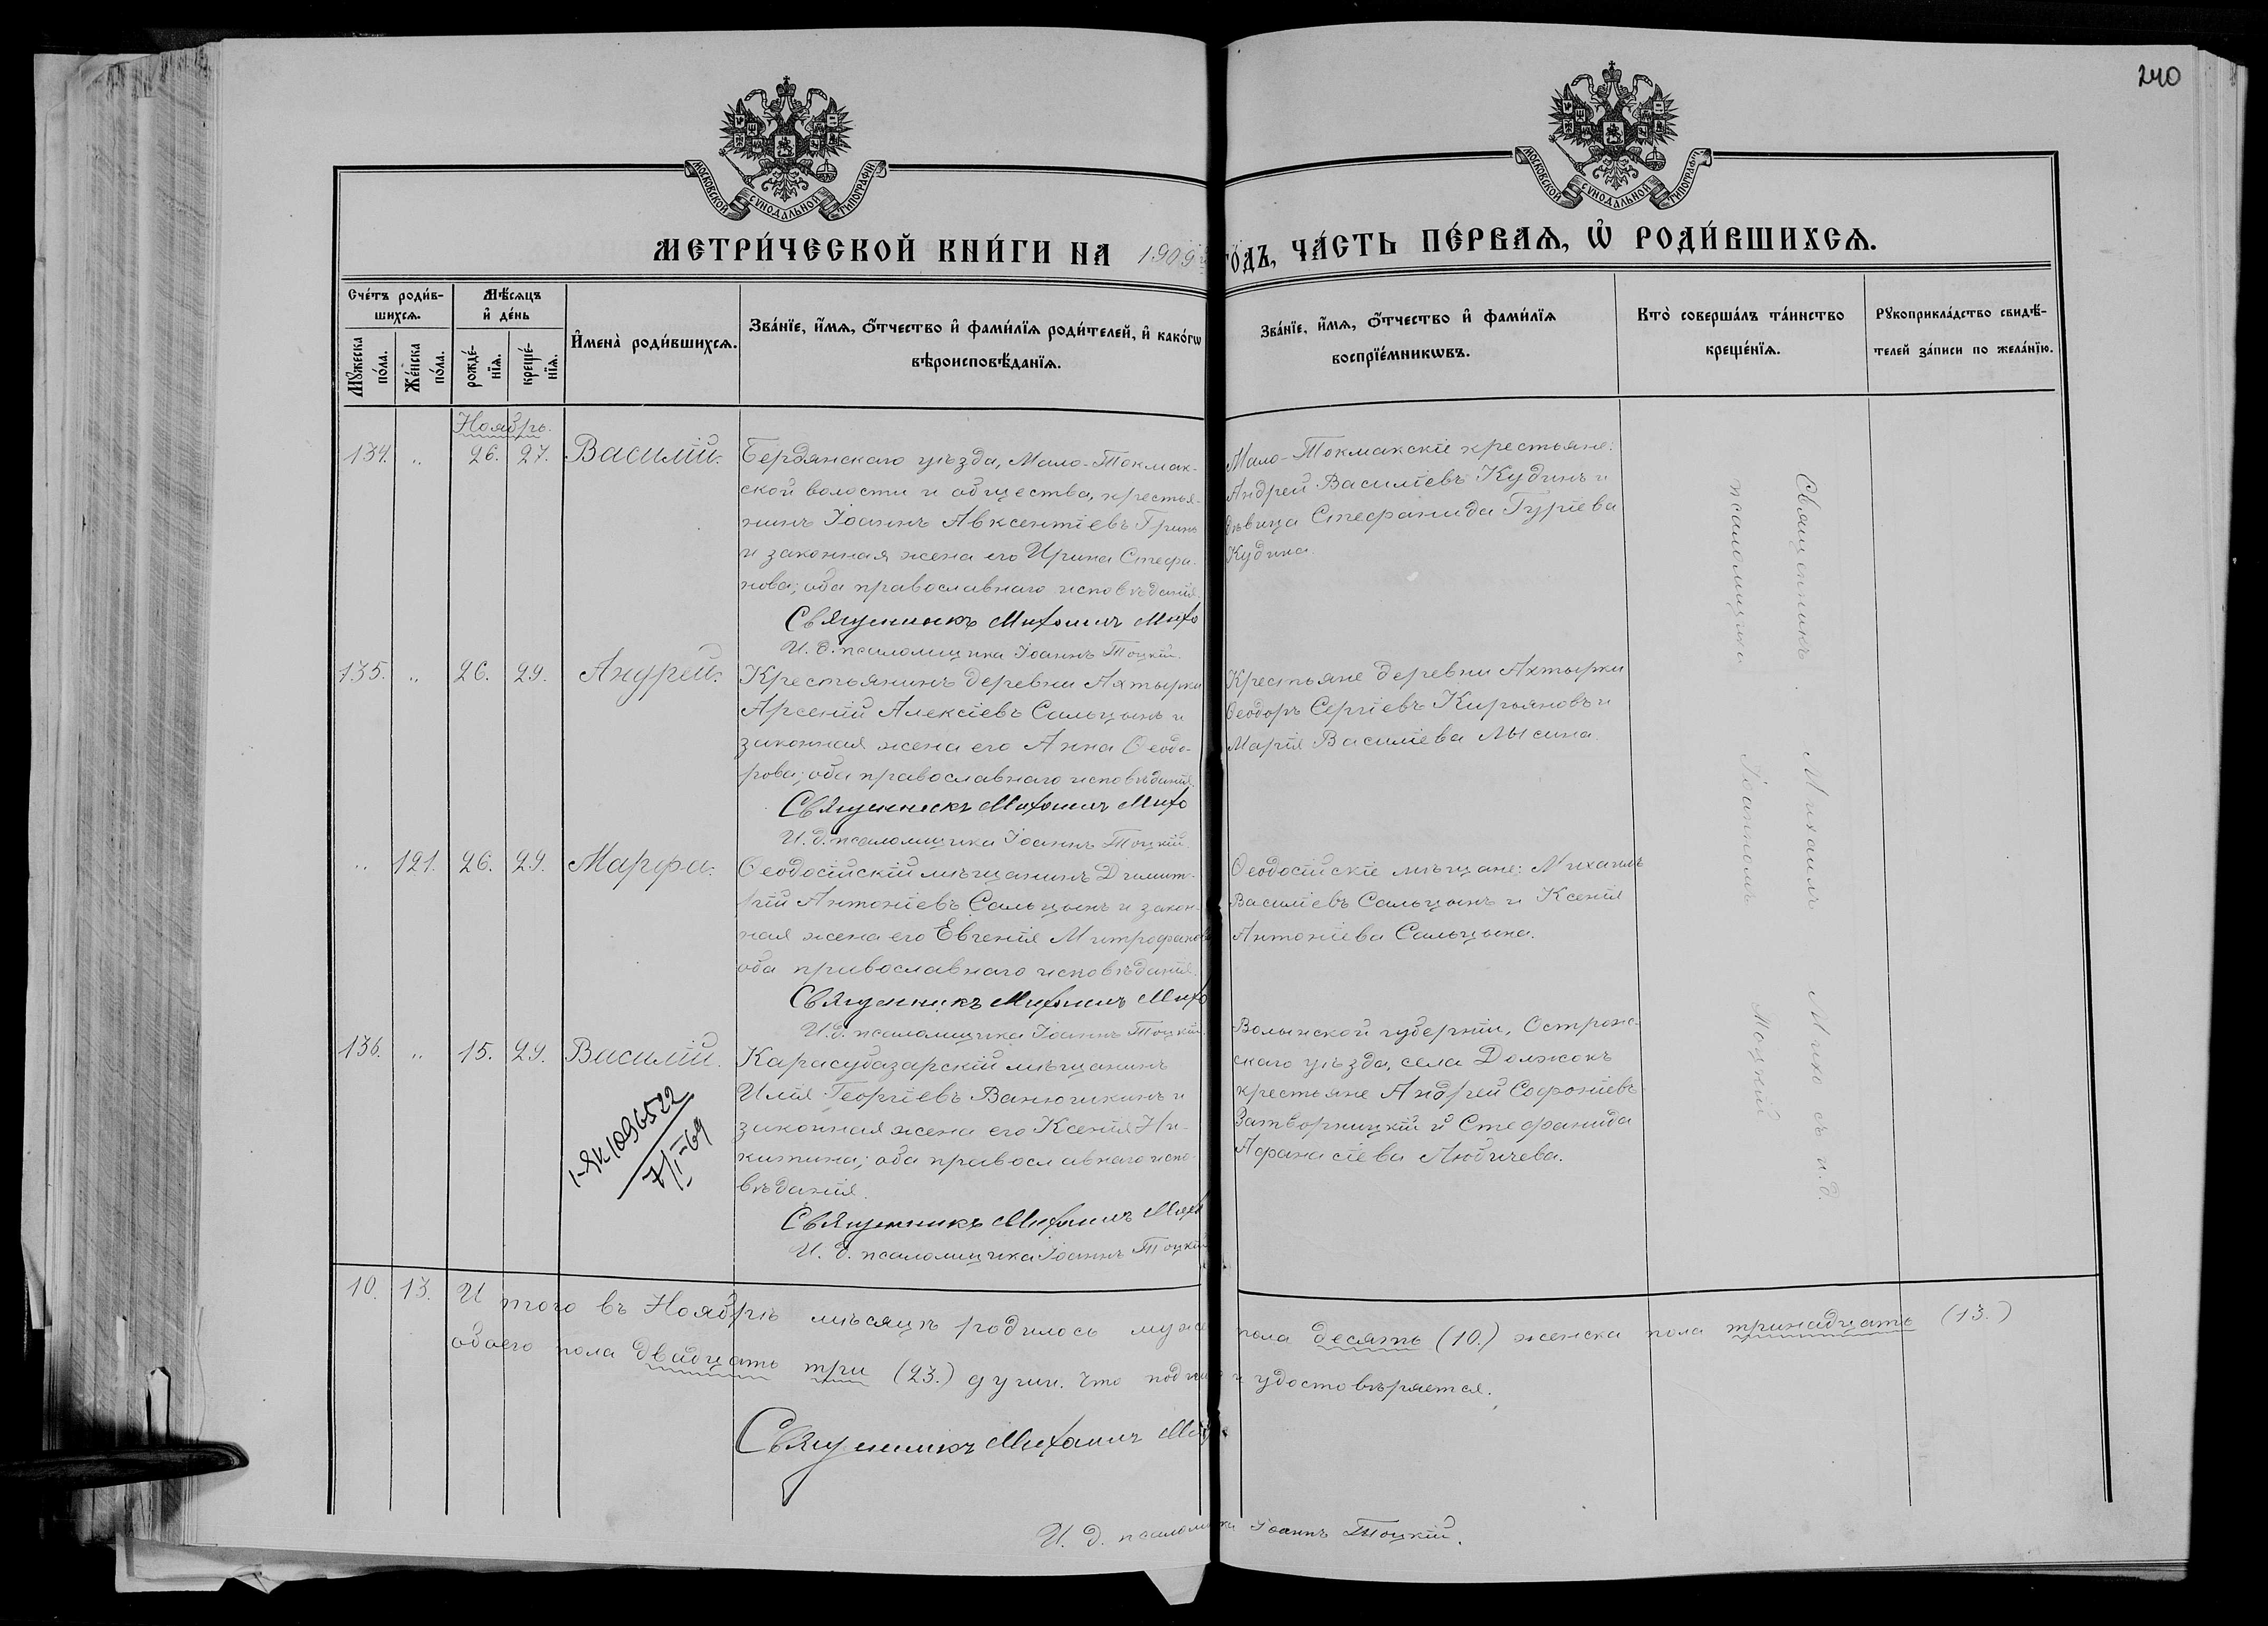 240
МОСКОВСКОЙ СѴНОДАЛЬНОЙ ТИПОГРАФІИ
МОСКОВСКОЙ СѴНОДАЛЬНОЙ ТИПОГРАФІИ
МЕТРИ́ЧЕСКОЙ КНИ́ГИ НА 1909 го́дъ, ЧА́СТЬ ПЕ́РВАѦ, Ѡ҆ РОДИ́ВШИХСѦ.
Сче́тъ роди́в-
шихсѧ.
Мꙋ́жеска по́ла.
Же́нска по́ла.
Мѣ́сѧцъ
и҆ де́нь
рожде́-
нїѧ.
креще́-
нїѧ.
И҆мена̀ роди́вшихсѧ.
Зва́нїе, и҆́мѧ, ѻ҆́тчество и҆ фами́лїѧ роди́телей, и҆ како́гѡ
вѣроисповѣ́данїѧ.
Зва́нїе, и҆́мѧ, ѻ҆́тчество и҆ фами́лїѧ
воспрїе́мникѡвъ.
Кто̀ соверша́лъ та́инство
креще́нїѧ.
Рꙋкоприкла́дство свидѣ́-
телей за́писи по жела́нїю.
Ноябрь.
134. „ 26. 27. Василій.
Бердянскаго уѣзда, Мало-Токмак-
ской волости и общества, крестья-
нинъ Іоаннъ Авксентіевъ Гринь
и законная жена его Ирина Стефа-
нова; оба православнаго исповѣданія.
Священникъ Михаилъ Михо
И. д. псаломщика Іоаннъ Тоцкій.
Мало-Токмакскіе крестьяне:
Андрей Василіевъ Кудинъ и
дѣвица Стефанида Гуріева
Кудина.
135. „ 26. 29. Андрей.
Крестьянинъ деревни Ахтырки
Арсеній Алексіевъ Сальцынъ и
законная жена его Анна Ѳеодо-
рова; оба православнаго исповѣданія.
Священникъ Михаилъ Михо
И. д. псаломщика Іоаннъ Тоцкій.
Крестьяне деревни Ахтырки
Ѳеодоръ Сергіевъ Кирьяновъ и
Марія Василіева Лысина.
„ 121. 26. 29. Марфа.
Ѳеодосійскій мѣщанинъ Димит-
рій Антоніевъ Сальцынъ и закон-
ная жена его Евгенія Митрофанова
оба православнаго исповѣданія.
Священникъ Михаилъ Михо
И. д. псаломщика Іоаннъ Тоцкій.
Ѳеодосійскіе мѣщане: Михаилъ
Василіевъ Сальцынъ и Ксенія
Антоніева Сальцына.
136. „ 15. 29. Василій.
Карасубазарскій мѣщанинъ
Илія Георгіевъ Ванюшкинъ и
законная жена его Ксенія Ни-
китина; оба православнаго испо-
вѣданія.
Священникъ Михаилъ Михо
И. д. псаломщика Іоаннъ Тоцкій
Волынской губерніи, Острож-
скаго уѣзда, села Должокъ
крестьяне Андрей Софоніевъ
Затворницкій и Стефанида
Афанасіева Любичева.
1096522
7/I-69
Священникъ Михаилъ Михо съ и. д.
псаломщика Іоанномъ Тоцкій
10. 13. Итого въ Ноябрѣ мѣсяцѣ родилось муж пола десять (10.) женска пола тринадцать (13.)
обоего пола двадцать три (23.) души. Что подписью удостовѣряется.
Священникъ Михаилъ Михо
И. д. псаломщика Іоаннъ Тоцкій.